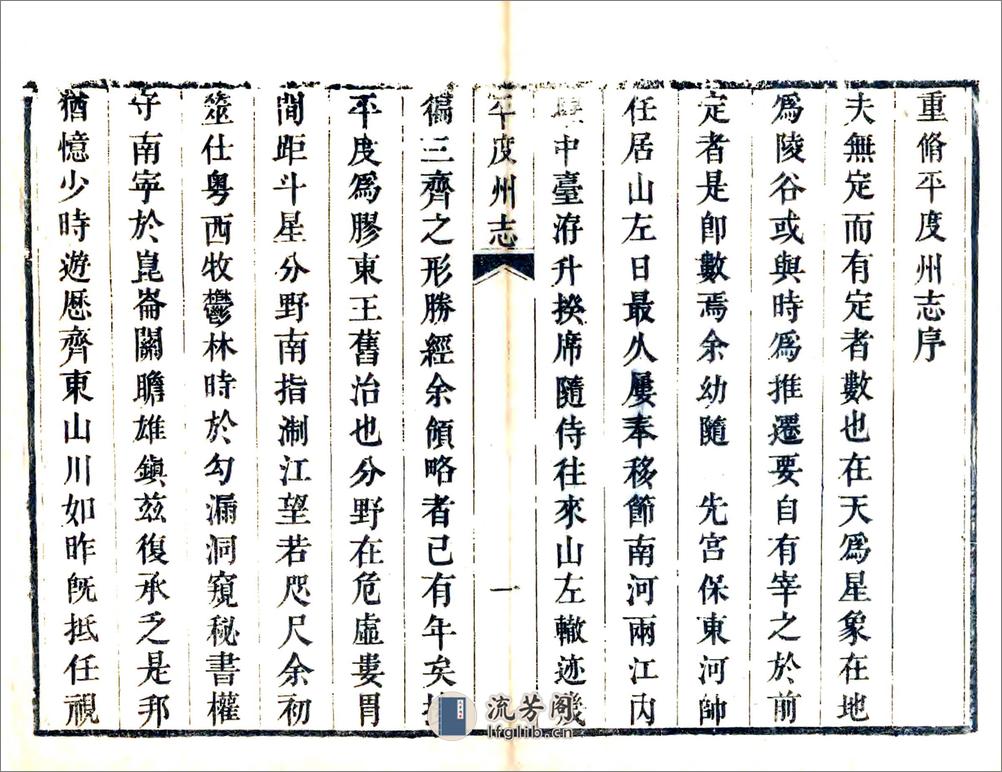 重脩平度州志序
夫無定而有定者數也在天爲星象在地
爲陵谷或與時爲推遷要自有宰之於前
定者是卽數焉余幼隨　先宮保東河帥
任居山左日最久屢奉移節南河兩江內
中臺洊升揆席隨侍往來山左轍迹幾
平度州志
一
徧三齊之形勝經余領略者已有年矣
平度爲膠東王舊治也分野在危虛婁胃
間距斗星分野南指淛江望若咫尺余初
筮仕粵西牧鬱林時於勾漏洞窺秘書權
守南寧於崑崙關瞻雄鎭茲復承乏是邦
猶憶少時遊歷齊東山川如昨旣抵任視
流芳阁
lfglib.cn